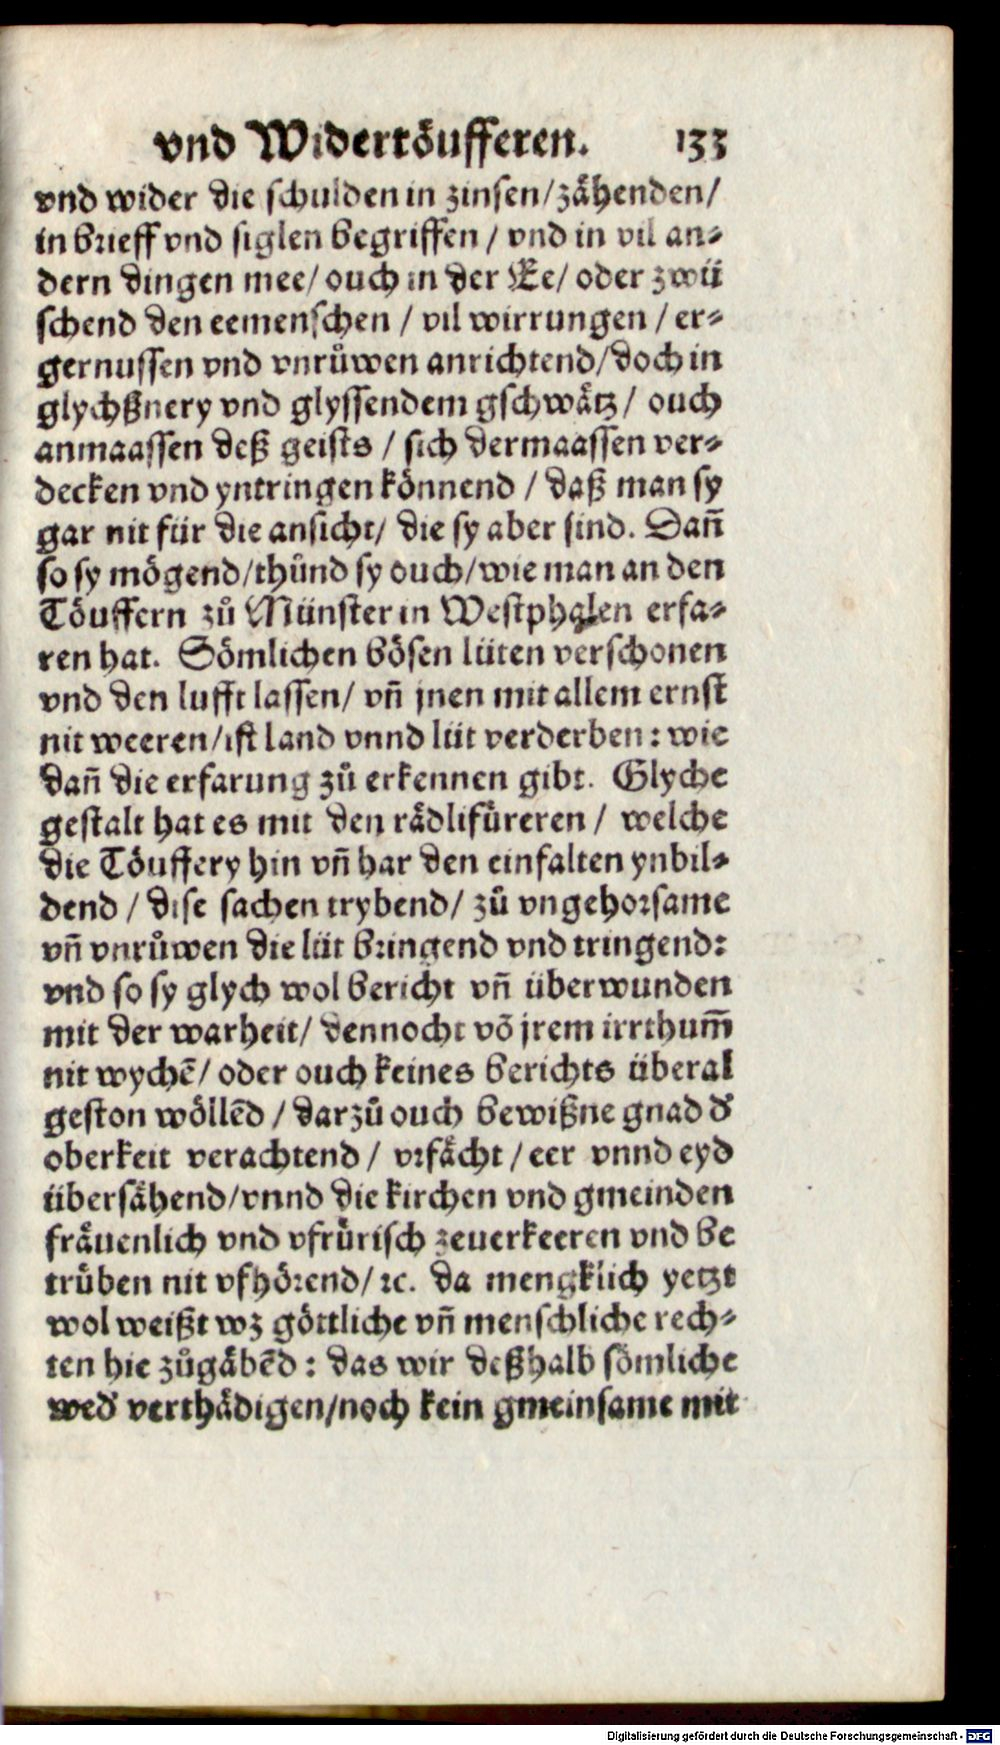 vnd Widertöufferen. 133
vnd wider die schulden in zinsen/zähenden/
in brieff vnd siglen begriffen / vnd in vil an-
dern dingen mee/ ouch in der Ee/ oder zwü
schend den eemenschen / vil wirrungen / er-
gernussen vnd vnrůwen anrichtend/doch in
glychßnery vnd glyssendem gschwätz/ ouch
anmaassen deß geists / sich dermaassen ver-
decken vnd yntringen könnend / daß man sy
gar nit für die ansicht/ die sy aber sind. Dañ
so sy mögend/thůnd sy ouch/wie man an den
Töuffern zů Münster in Westphalen erfa-
ren hat. Sömlichen bösen lüten verschonen
vnd den lufft lassen/ vñ jnen mit allem ernst
nit weeren/ist land vnnd lüt verderben: wie
dañ die erfarung zů erkennen gibt. Glyche
gestalt hat es mit den rädlifüreren / welche
die Töuffery hin vñ har den einfalten ynbil-
dend / dise sachen trybend/ zů vngehorsame
vñ vnrůwen die lüt bringend vnd tringend:
vnd so sy glych wol bericht vñ überwunden
mit der warheit/ dennocht võ jrem irrthum̃
nit wychẽ/ oder ouch keines berichts überal
geston wöllẽd / darzů ouch bewißne gnad d'
oberkeit verachtend / vrfächt / eer vnnd eyd
übersähend/vnnd die kirchen vnd gmeinden
fräuenlich vnd vfrürisch zeuerkeeren vnd be
trüben nit vfhörend/ ꝛc. da mengklich yetzt
wol weißt wz göttliche vñ menschliche rech-
ten hie zůgäbẽd : das wir deßhalb sömliche
wed' verthädigen/noch kein gmeinsame mit
Digitalisierung gefördert durch die Deutsche Forschungsgemeinschaft - DFG